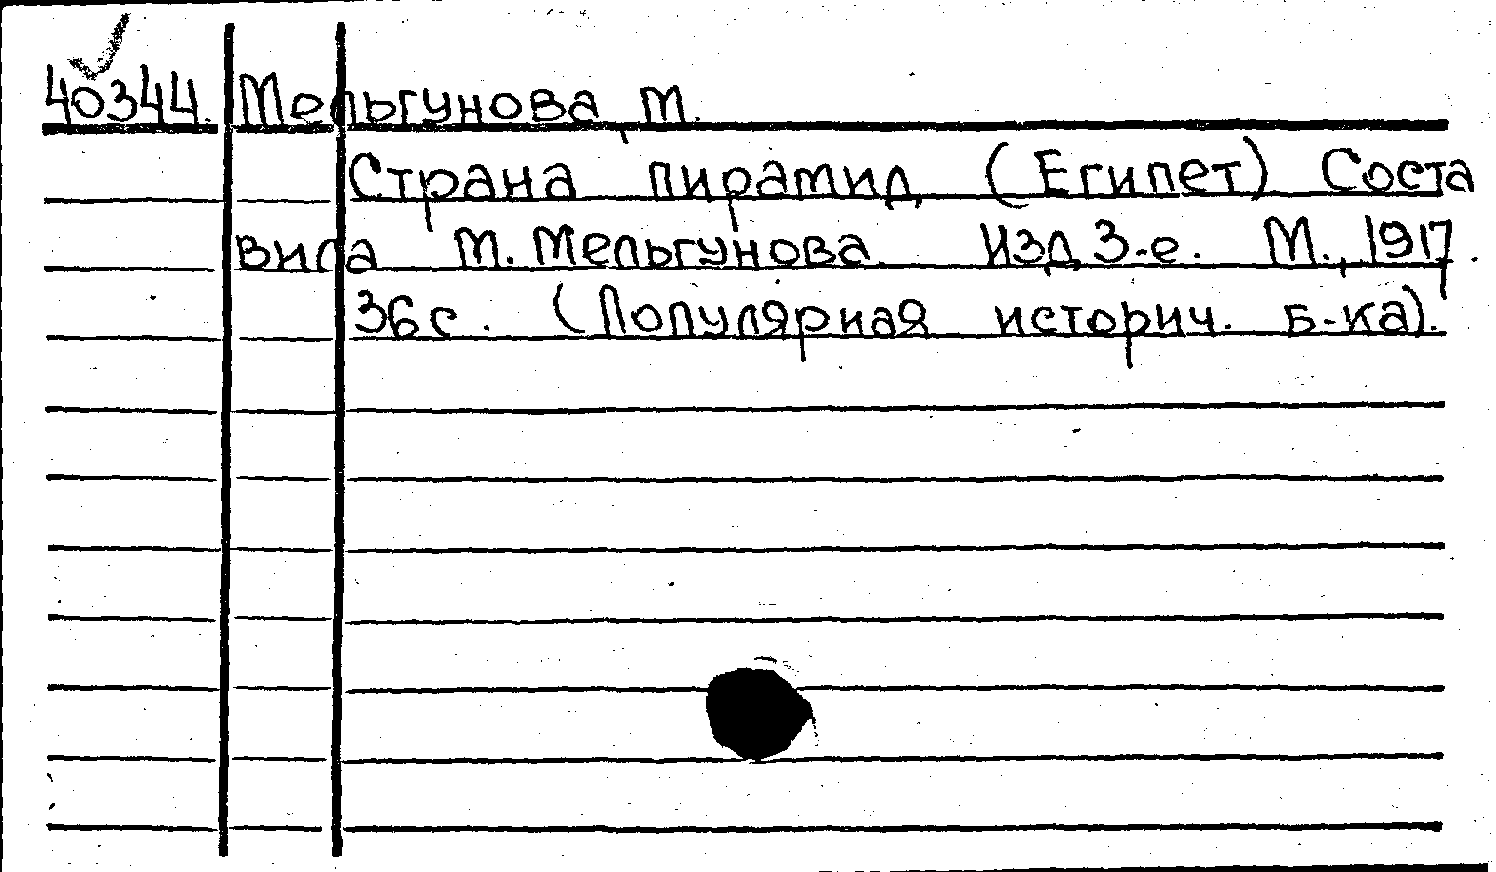 40344. Мельгунова, М.
Страна пирамид (Египет) Соста
вила М. Мельгунова. Изд. 3-е. М., 1917.
36 с. (Популярная историч. б-ка).